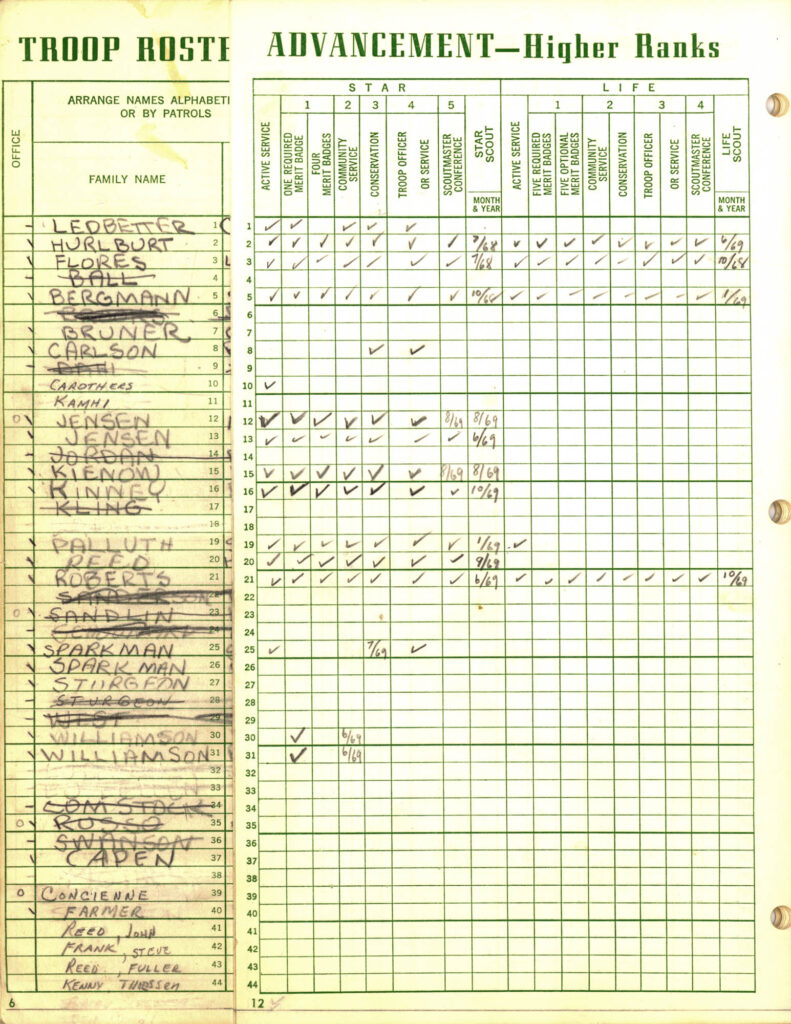 TROOP ROSTE
ARRANGE NAMES ALPHABETI
OR BY PATROLS
OFFICE
FAMILY NAME
LEDBETTER 1
HURLBURT 2
FLORES 3
BALL 4
BERGMANN 5
6
BRUNER 7
CARLSON 8
9
CAROTHERS 10
KAMHI 11
JENSEN 12
JENSEN 13
JORDAN 14
KIENOW 15
KINNEY 16
KLING 17
18
PALLUTH 19
REED 20
ROBERTS 21
SANDERSON 22
SANDLIN 23
24
SPARKMAN 25
SPARKMAN 26
STURGEON 27
STURGEON 28
WEST 29
WILLIAMSON 30
WILLIAMSON 31
32
33
COMSTOCK 34
RUSSO 35
SWANSON 36
CAPEN 37
38
CONCIENNE 39
FARMER 40
REED, JOHN 41
FRANK, STEVE 42
REED, FULLER 43
KENNY THIESSEN 44
6
ADVANCEMENT—Higher Ranks
STAR LIFE
1 2 3 4 5 1 2 3 4
ACTIVE SERVICE
ONE REQUIRED MERIT BADGE
FOUR MERIT BADGES
COMMUNITY SERVICE
CONSERVATION
TROOP OFFICER
OR SERVICE
SCOUTMASTER CONFERENCE
STAR SCOUT
MONTH & YEAR
ACTIVE SERVICE
FIVE REQUIRED MERIT BADGES
FIVE OPTIONAL MERIT BADGES
COMMUNITY SERVICE
CONSERVATION
TROOP OFFICER
OR SERVICE
SCOUTMASTER CONFERENCE
LIFE SCOUT
MONTH & YEAR
1 ✓ ✓ ✓ ✓ ✓
2 ✓ ✓ ✓ ✓ ✓ ✓ ✓ /68 ✓ ✓ ✓ ✓ ✓ ✓ ✓ ✓ 6/69
3 ✓ ✓ ✓ ✓ ✓ ✓ ✓ 7/68 ✓ ✓ ✓ ✓ ✓ ✓ ✓ ✓ 10/68
4
5 ✓ ✓ ✓ ✓ ✓ ✓ ✓ 10/68 ✓ ✓ ✓ ✓ ✓ ✓ ✓ ✓ 1/69
6
7
8 ✓ ✓
9
10 ✓
11
12 ✓ ✓ ✓ ✓ ✓ ✓ 8/69 8/69
13 ✓ ✓ ✓ ✓ ✓ ✓ ✓ 6/69
14
15 ✓ ✓ ✓ ✓ ✓ ✓ 8/69 8/69
16 ✓ ✓ ✓ ✓ ✓ ✓ ✓ 10/69
17
18
19 ✓ ✓ ✓ ✓ ✓ ✓ ✓ 1/69 ✓
20 ✓ ✓ ✓ ✓ ✓ ✓ ✓ 9/69
21 ✓ ✓ ✓ ✓ ✓ ✓ ✓ 6/69 ✓ ✓ ✓ ✓ ✓ ✓ ✓ ✓ 10/69
22
23
24
25 ✓ 7/69 ✓
26
27
28
29
30 ✓ 6/69
31 ✓ 6/69
32
33
34
35
36
37
38
39
40
41
42
43
44
12